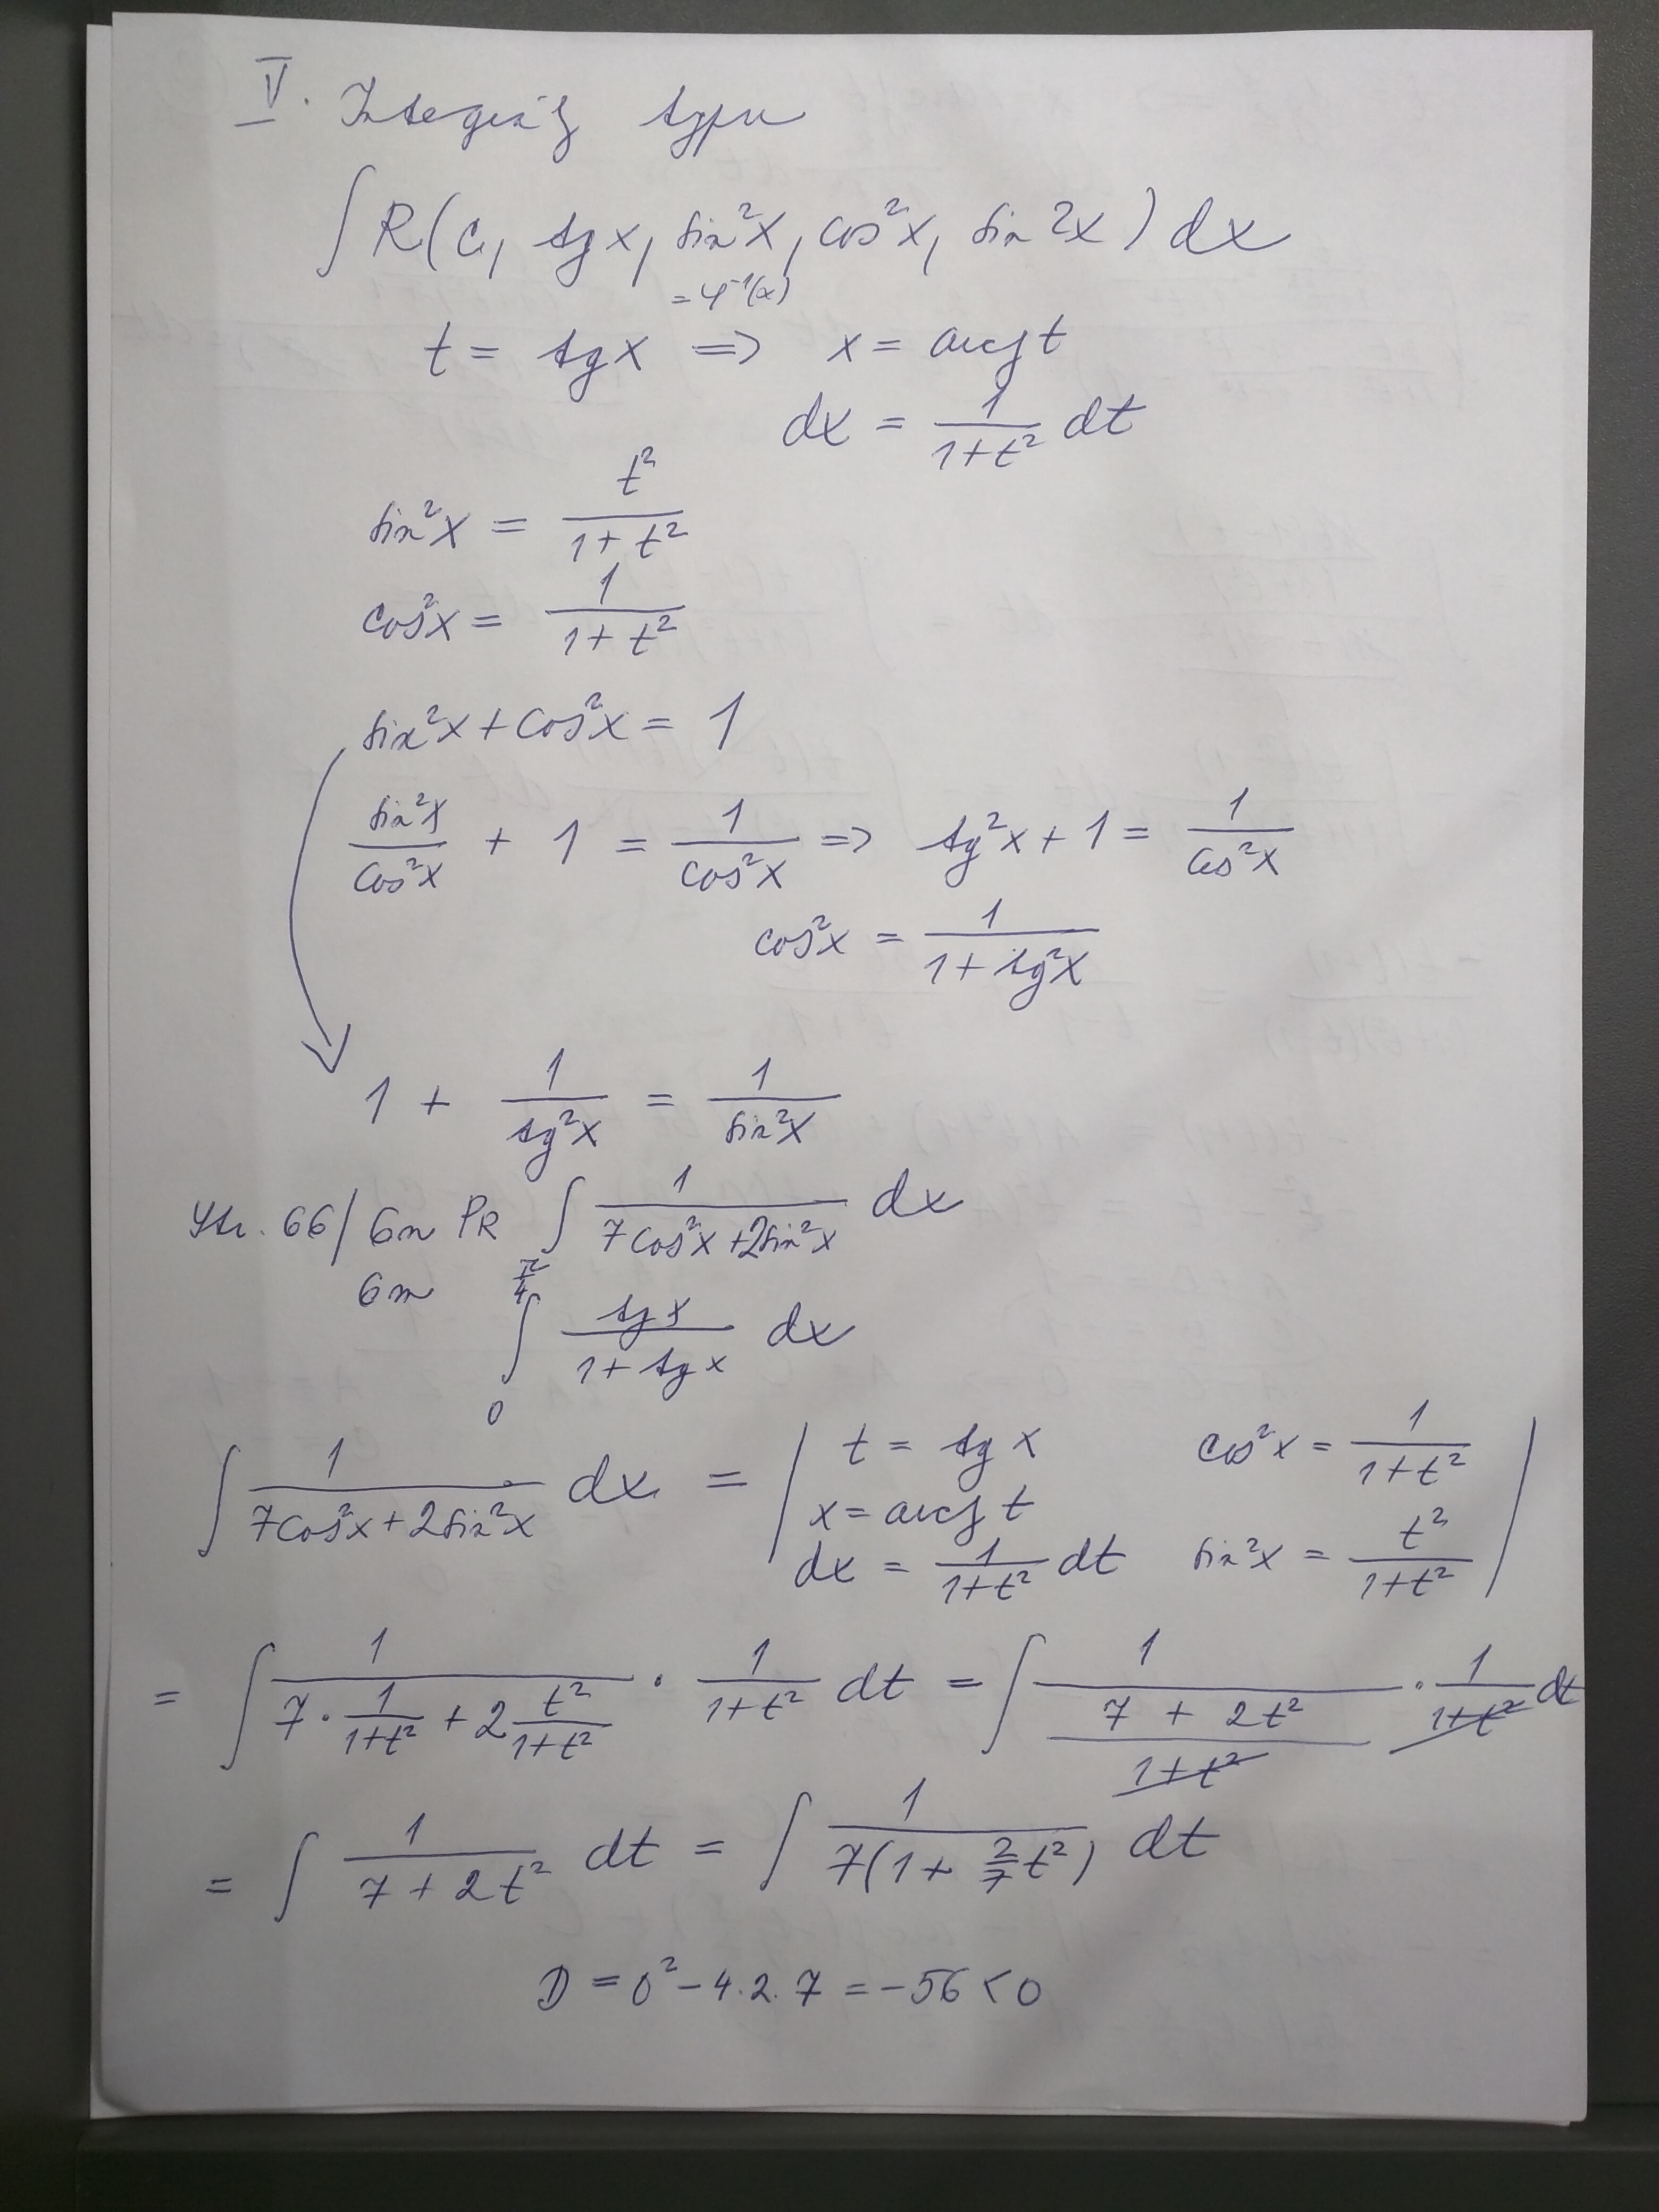 V. Integrály typu
∫ R(c, tg x, sin²x, cos²x, sin 2x) dx
= φ⁻¹(x)
t = tg x => x = arctg t
dx = 1/(1+t²) dt
sin²x = t²/(1+t²)
cos²x = 1/(1+t²)
sin²x + cos²x = 1
sin²x/cos²x + 1 = 1/cos²x => tg²x + 1 = 1/cos²x
cos²x = 1/(1+tg²x)
1 + 1/tg²x = 1/sin²x
Str. 66/ 6n PR ∫ 1/(7cos²x + 2sin²x) dx
6m ∫₀^(π/4) tg x/(1+tg x) dx
∫ 1/(7cos²x + 2sin²x) dx = | t = tg x cos²x = 1/(1+t²) |
x = arctg t
dx = 1/(1+t²) dt sin²x = t²/(1+t²)
= ∫ 1/(7·1/(1+t²) + 2 t²/(1+t²)) · 1/(1+t²) dt = ∫ 1/((7 + 2t²)/(1+t²)) · 1/(1+t²) dt
= ∫ 1/(7 + 2t²) dt = ∫ 1/(7(1 + 2/7 t²)) dt
D = 0² - 4.2.7 = -56 < 0